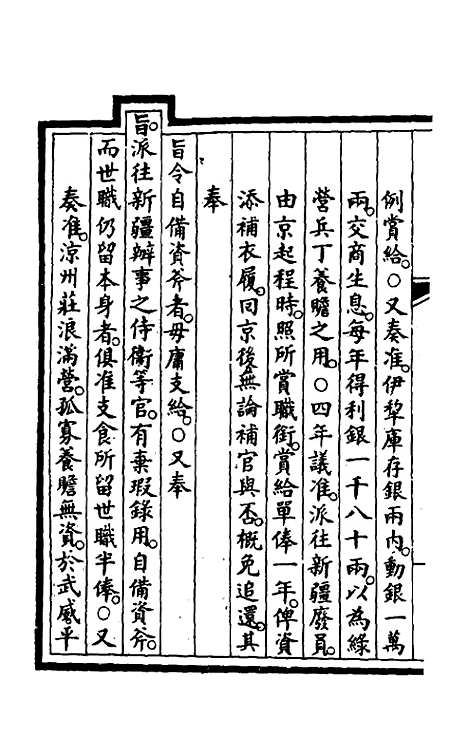 例賞給。○又奏准。伊犂庫存銀兩內。動銀一萬
兩。交商生息。每年得利銀一千八十兩。以為綠
營兵丁養贍之用。○四年議准。派往新疆廢員。
由京起程時。照所賞職銜。賞給單俸一年。俾資
添補衣履。回京後。無論補官與否。概免追還。其
奉
旨令自備資斧者。毋庸支給。○又奉
旨。派往新疆辦事之侍衞等官。有棄瑕錄用。自備資斧。
而世職仍留本身者。俱准支食所留世職半俸。○又
奏准。涼州莊浪滿營。孤寡養贍無資。於武威平